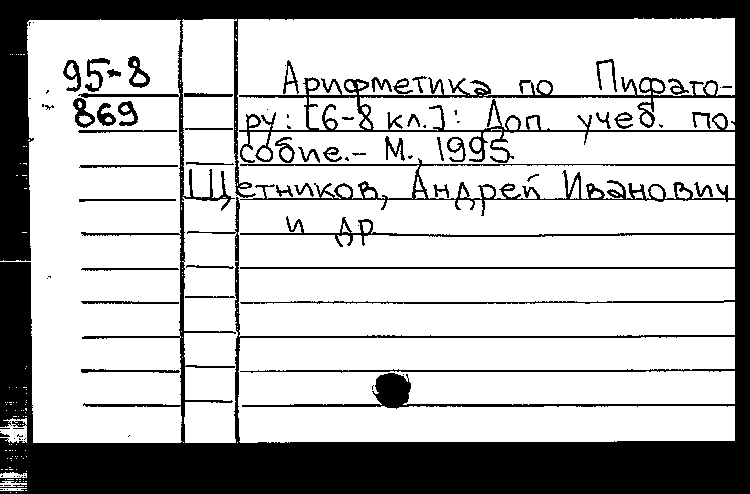 95-8 Арифметика по Пифаго-
869 ру: [6-8 кл.]: Доп. учеб. по-
собие.- М., 1995.
Щетников, Андрей Иванович
и др